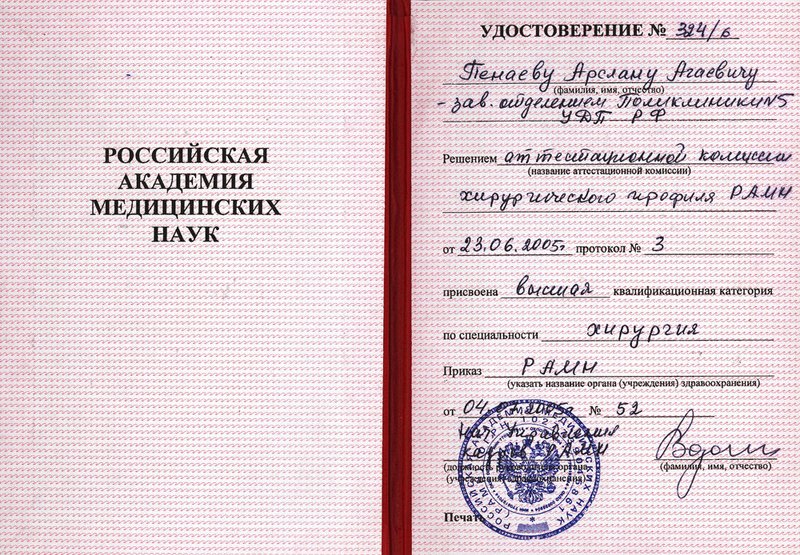 РОССИЙСКАЯ
АКАДЕМИЯ
МЕДИЦИНСКИХ
НАУК
УДОСТОВЕРЕНИЕ № 324/б
Пенаеву Арслану Агаевичу
(фамилия, имя, отчество)
- зав. отделением Поликлиники №5
УДП РФ
Решением аттестационной комиссии
(название аттестационной комиссии)
хирургического профиля РАМН
от 23.06.2005г протокол № 3
присвоена высшая квалификационная категория
по специальности хирургия
Приказ РАМН
(указать название органа (учреждения) здравоохранения)
от 04. 2005г № 52
Нач. Управления
кадров РАМН
(должность руководителя органа (фамилия, имя, отчество)
(учреждения) здравоохранения)
Печать